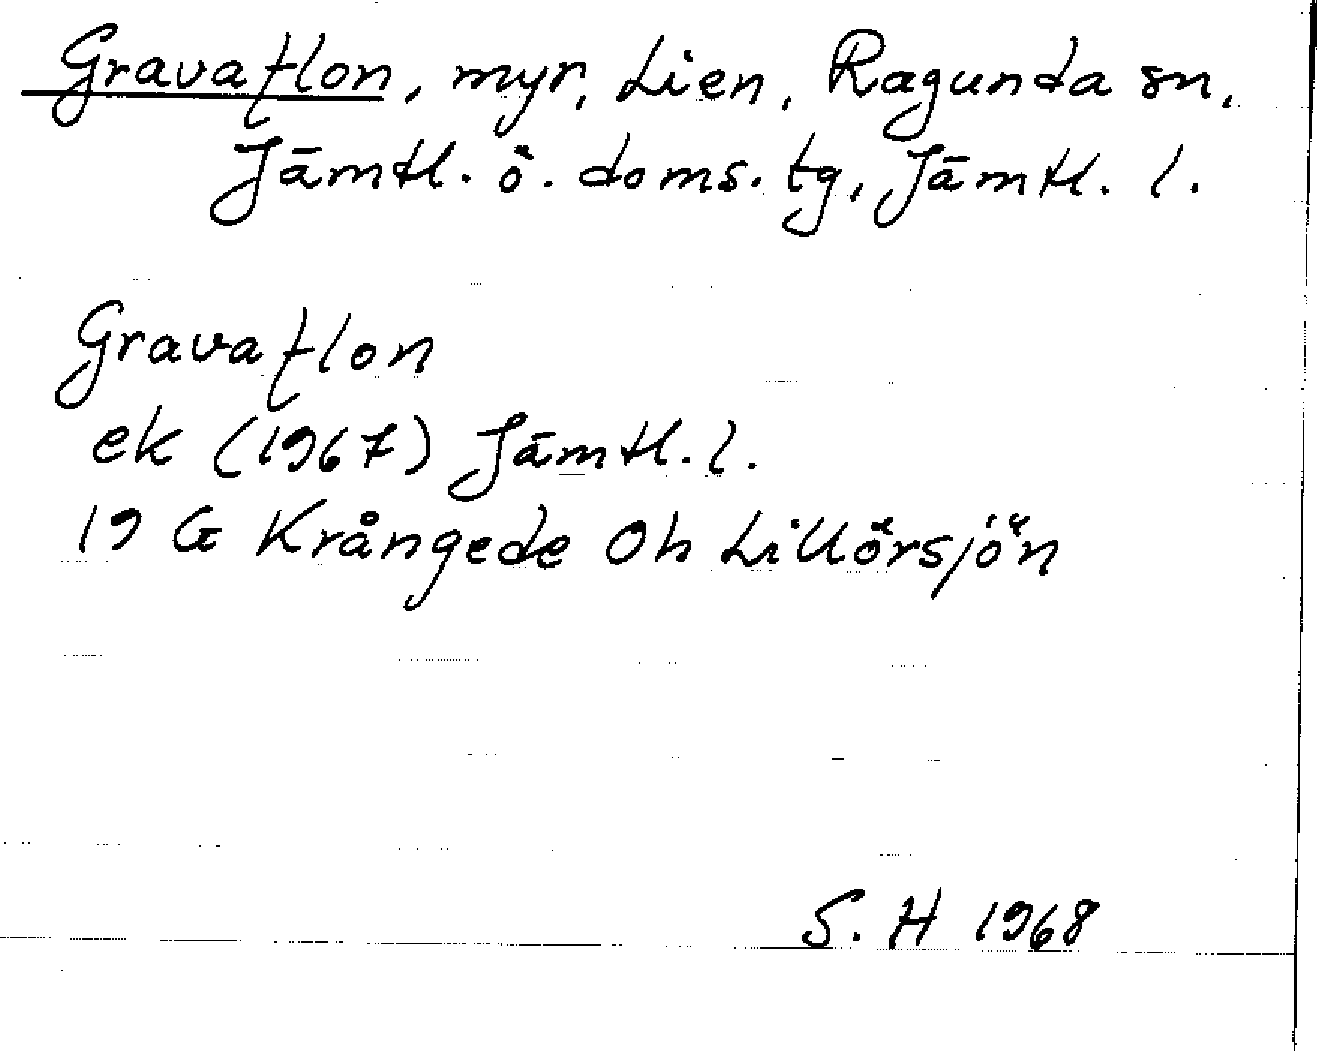 Gravaflon, myr, Lien, Ragunda sn,
Jämtl. ö. doms. tg, Jämtl. l.
Gravaflon
ek (1967) Jämtl. l.
19 G Krångede Oh Lillörsjön
S. H 1968